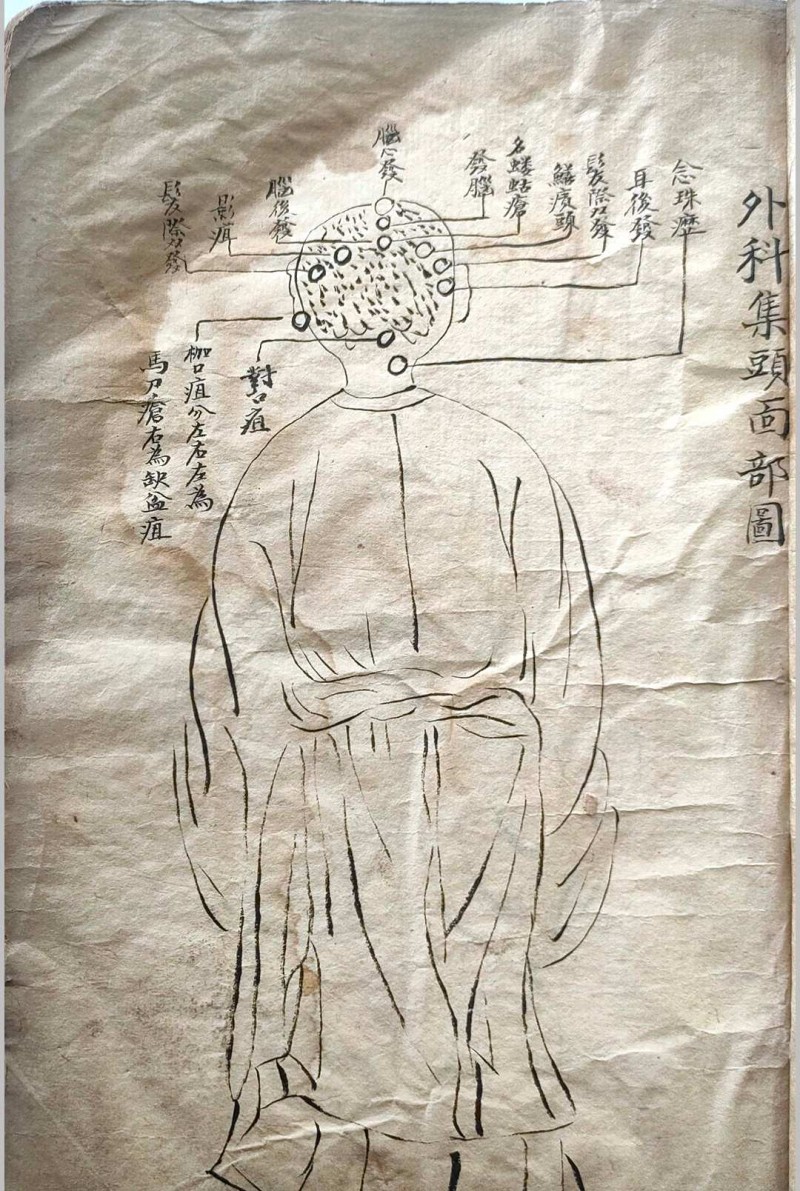 外科集頭面部圖
念珠癧
耳後發
髮際發
鱔㾿頭
名螻蛄瘡
發腦
腦心發
腦後發
影疽
髮際發
對口疽
枷口疽分左右左為
馬刀瘡右為缺盆疽